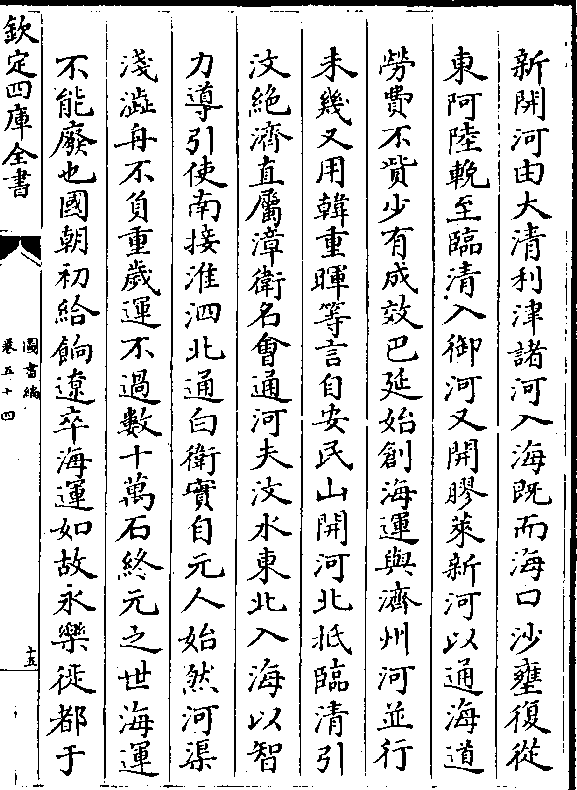 新開河由大清利津諸河入海既而海口沙壅復從
東阿陸輓至臨清入御河又開膠萊新河以通海道
勞費不貲少有成效巴延始創海運與濟州河並行
未幾又用韓重暉等言自安民山開河北抵臨清引
汶絶濟直屬漳衛名㑹通河夫汶水東北入海以智
力導引使南接淮泗北通白衛實自元人始然河渠
淺澁舟不負重歲運不過數十萬石終元之世海運
不能廢也國朝初給餉遼卒海運如故永樂徙都于
欽定四庫全書
圖書編
卷五十四
十五